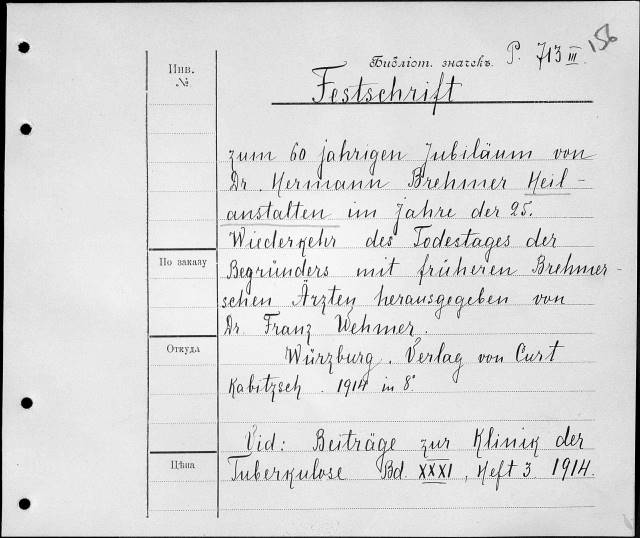 156
Библіот. значекъ. P. 713 III.
Инв.
№
Festschrift
zum 60 jahrigen Jubiläum von
Dr. Hermann Brehmer Heil-
anstalten im Jahre der 25.
Wiederkehr des Todestages der
По заказу
Begründers mit früheren Brehmer-
schen Ärzten herausgegeben von
Dr. Franz Wehmer.
Откуда
Würzburg. Verlag von Curt
Kabitzsch. 1914 in 8°
Vid: Beiträge zur Klinik der
Цѣна
Tuberkulose Bd. XXXI, Heft 3 1914.